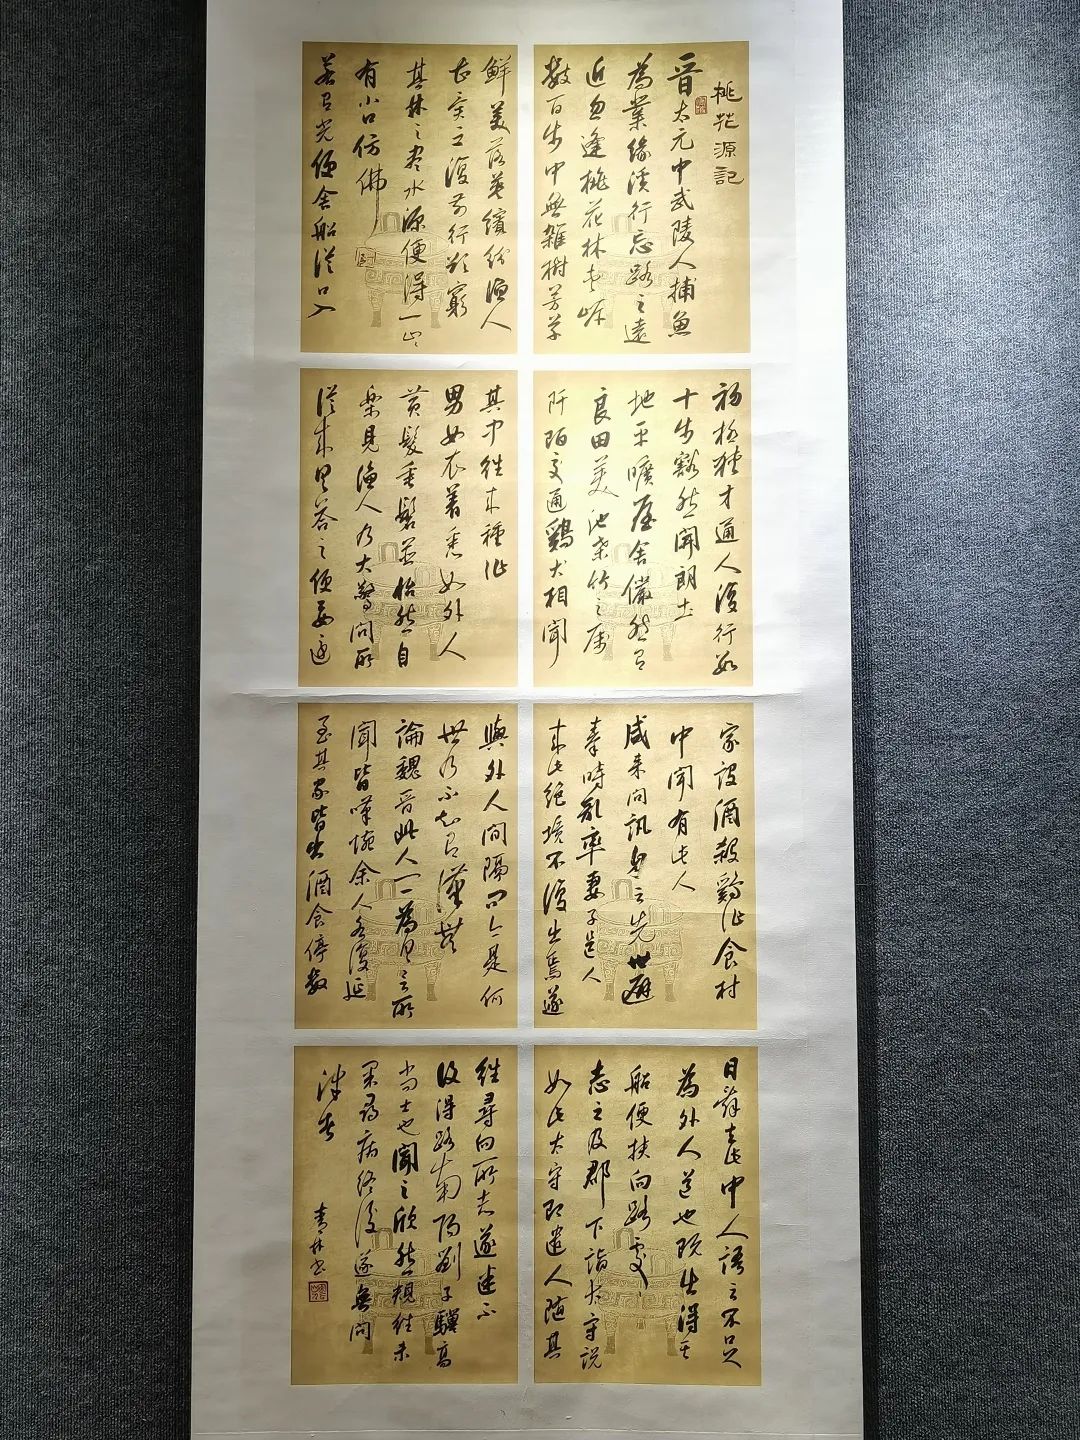 桃花源記
晉太元中武陵人捕魚
為業緣溪行忘路之遠
近忽逢桃花林夹岸
數百步中無雜樹芳草
鮮美落英繽紛漁人
甚異之復前行欲窮
其林之盡水源便得一山
有小口仿佛
若有光便舍船從口入
初極狹才通人復行數
十步豁然開朗土
地平曠屋舍儼然有
良田美池桑竹之属
阡陌交通鷄犬相聞
其中往來種作
男女衣著悉如外人
黃髮垂髫並怡然自
樂見漁人乃大驚問所
從來具答之便要還
家設酒殺鷄作食村
中聞有此人
咸來問訊自云先世避
秦時亂率妻子邑人
來此絕境不復出焉遂
與外人間隔問今是何
世乃不知有漢無
論魏晉此人一一為具言所
聞皆嘆惋余人各復延
至其家皆出酒食停數
日辞去此中人語云不足
為外人道也既出得其
船便扶向路處〻
志之及郡下詣太守説
如此太守即遣人隨其
往尋向所志遂迷不
復得路南陽劉子驥高
尚士也聞之欣然規往未
果尋病終後遂無問
津者
青林书